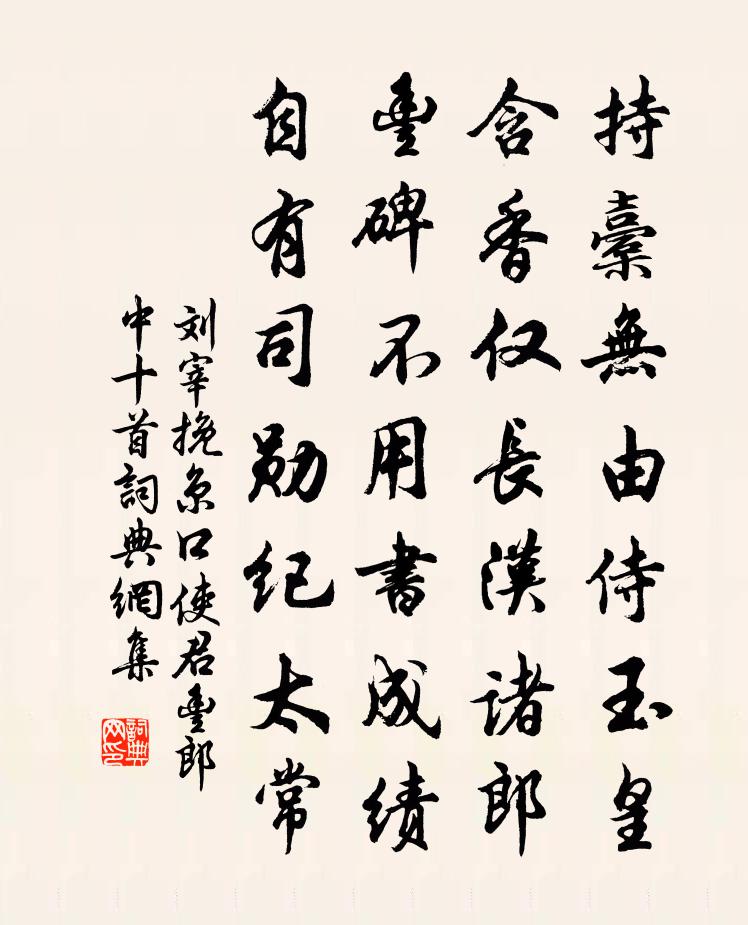 持橐無由侍玉皇
含香仅長漢諸郎
豐碑不用書成绩
自有司勋纪太常
刘宰挽京口使君豐郎
中十首詞典網集
詞典网印